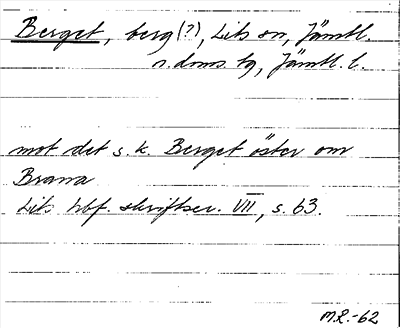 Berget, berg (?), Lits sn, Jämtl.
n. doms. tg, Jämtl. l.
mot det s. k. Berget öster om
Brana
Lits hbf. skriftser. VII, s. 63.
M.L.-62